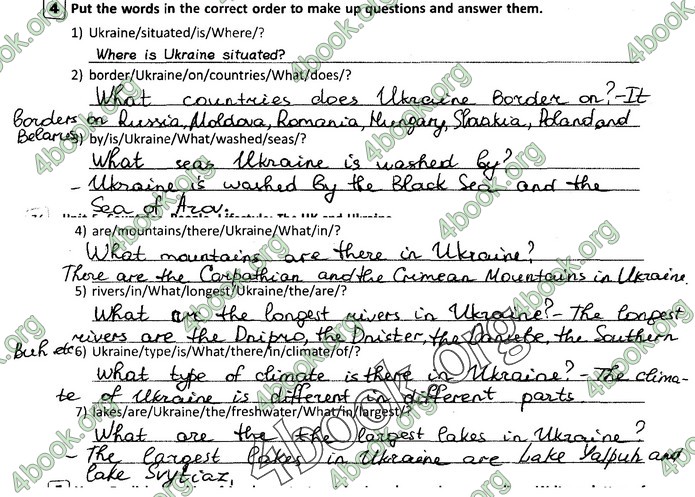 4 Put the words in the correct order to make up questions and answer them.
1) Ukraine/situated/is/Where/?
Where is Ukraine situated?
2) border/Ukraine/on/countries/What/does/?
What countries does Ukraine border on? - It
Borders on Russia, Moldova, Romania, Hungary, Slovakia, Poland and
Belarus.
3) by/is/Ukraine/What/washed/seas/?
What seas Ukraine is washed by?
- Ukraine is washed by the Black Sea and the
Sea of Azov.
4) are/mountains/there/Ukraine/What/in/?
What mountains are there in Ukraine?
There are the Carpathian and the Crimean Mountains in Ukraine.
5) rivers/in/What/longest/Ukraine/the/are/?
What are the longest rivers in Ukraine? - The longest
rivers are the Dnipro, the Dnister, the Danube, the Southern
Buh etc
6) Ukraine/type/is/What/there/in/climate/of/?
What type of climate is there in Ukraine? - The clima-
te of Ukraine is different in different parts.
7) lakes/are/Ukraine/the/freshwater/What/in/largest/?
What are the the largest lakes in Ukraine?
- The largest lakes in Ukraine are Lake Yalpuh and
lake Svytiaz.
4book.org